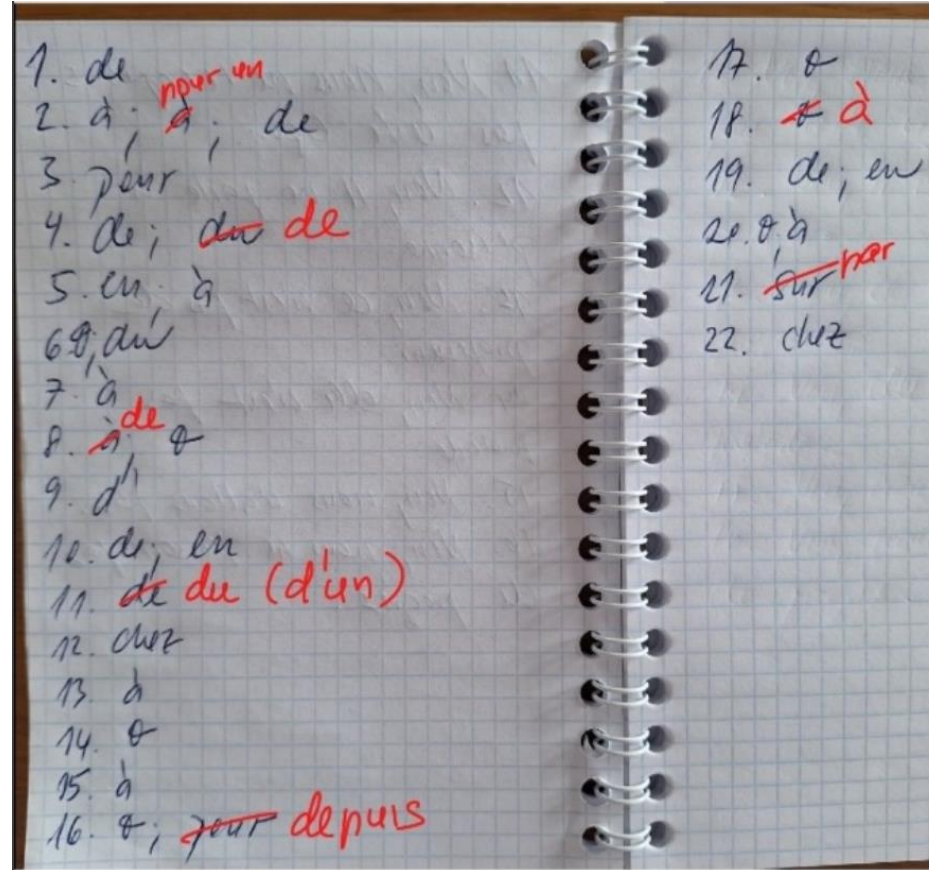 1. de
pour en
2. à; à; de
3. pour
4. de; du de
5. en; à
6 ø; du
7. à
de
8. à; ø
9. d'
10. de; en
11. de du (d'un)
12. chez
13. à
14. ø
15. à
16. ø; pour depuis
17. ø
18. ø à
19. de; en
20. ø, à
par
21. sur
22. chez